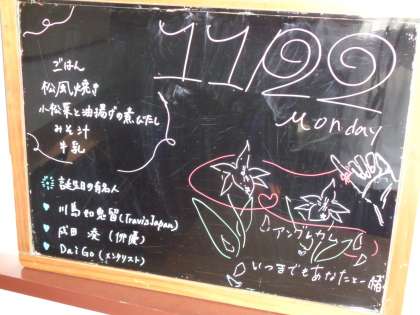 11/22
Monday
ごはん
松風焼き
小松菜と油揚げの煮びたし
みそ汁
牛乳
誕生日の有名人
川島如恵留(Travis Japan)
成田 凌(俳優)
DaiGo(メンタリスト)
アングレカム
いつまでもあなたと一緒